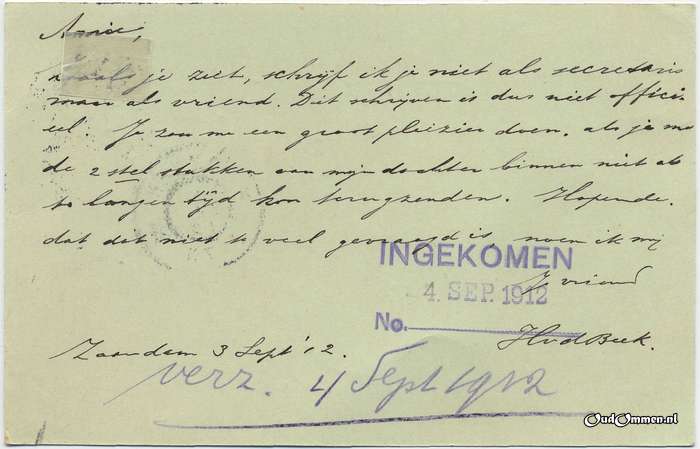 Amice,
Zooals je ziet, schrijf ik je niet als secretaris
maar als vriend. Dit schrijven is dus niet offici-
eel. Je zou me een groot pleizier doen, als je me
de 2 stel stukken van mijn dochter binnen niet al
te langen tijd kon terugzenden. Hopende,
dat dit niet te veel gevraagd is, noem ik mij
INGEKOMEN
Je vriend
4. SEP. 1912
No.
HvdBeek.
Zaandam 3 Sept '12.
verz. 4 Sept 1912
OudOmmen.nl